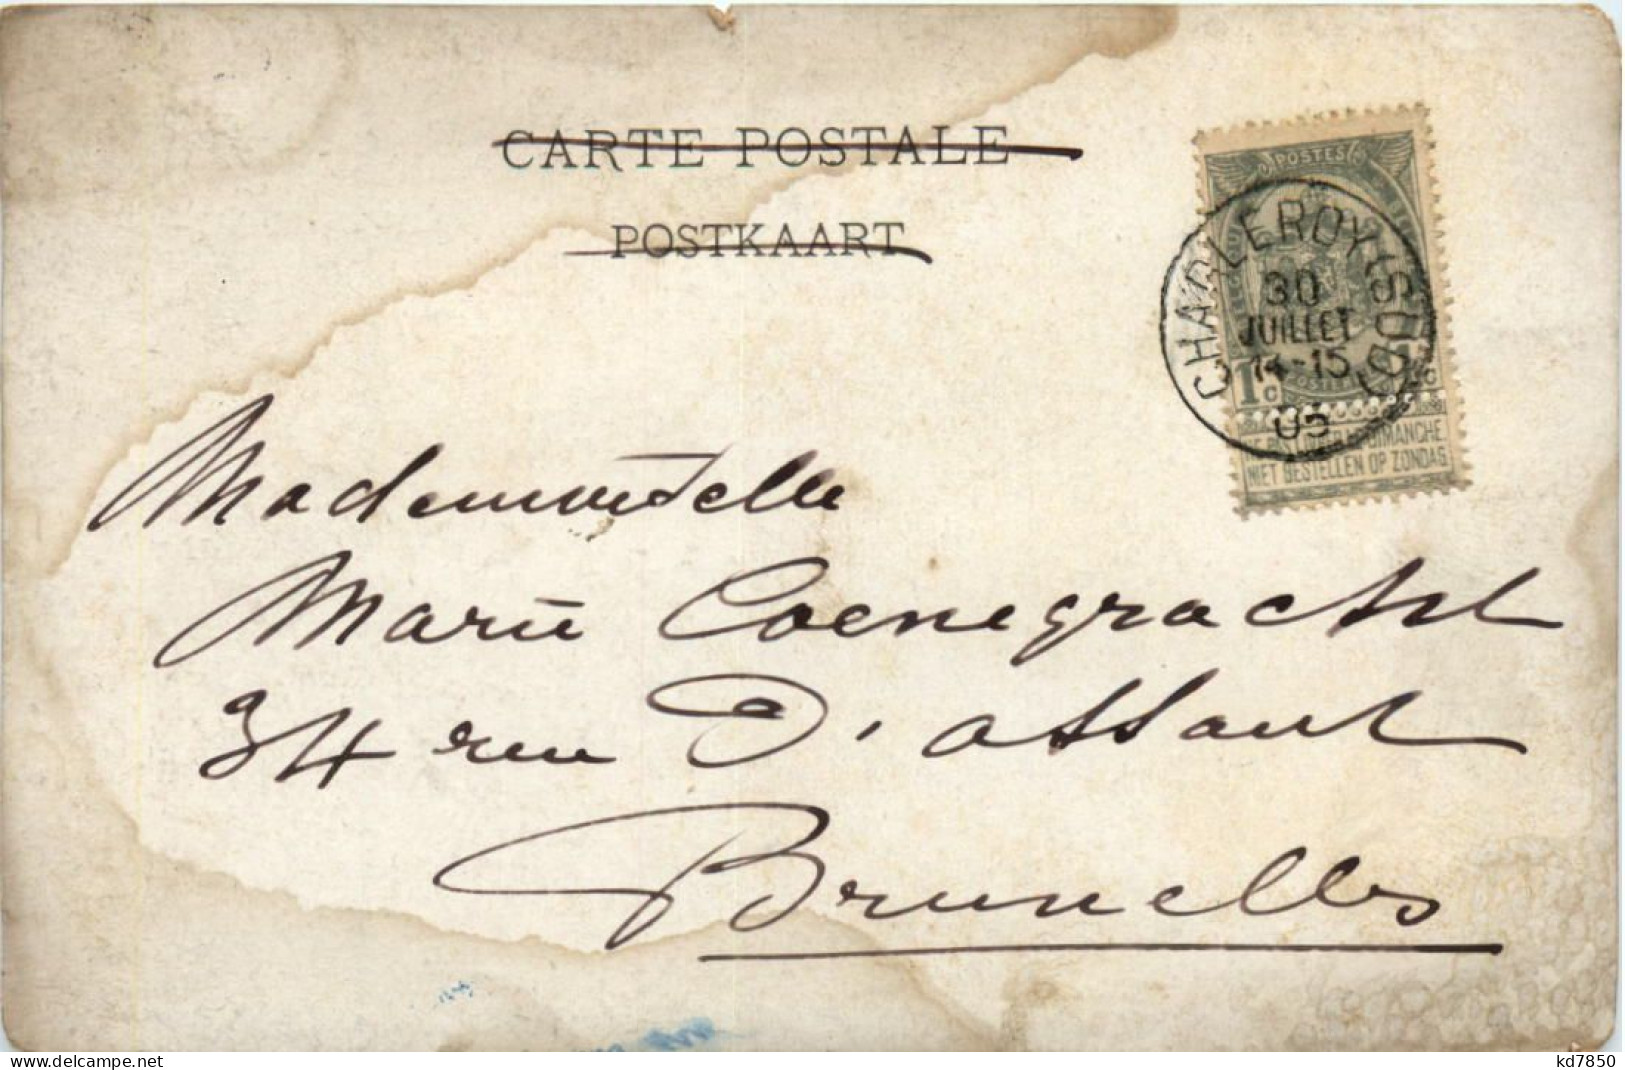 CARTE POSTALE
POSTKAART
POSTES
CHARLEROY (SUD)
30
JUILLET
14-15
05
1c
NE PAS LIVRER LE DIMANCHE
NIET BESTELLEN OP ZONDAG
Mademoiselle
Marie Coenegracht
34 rue d'assaut
Bruxelles
www.delcampe.net
kd7850